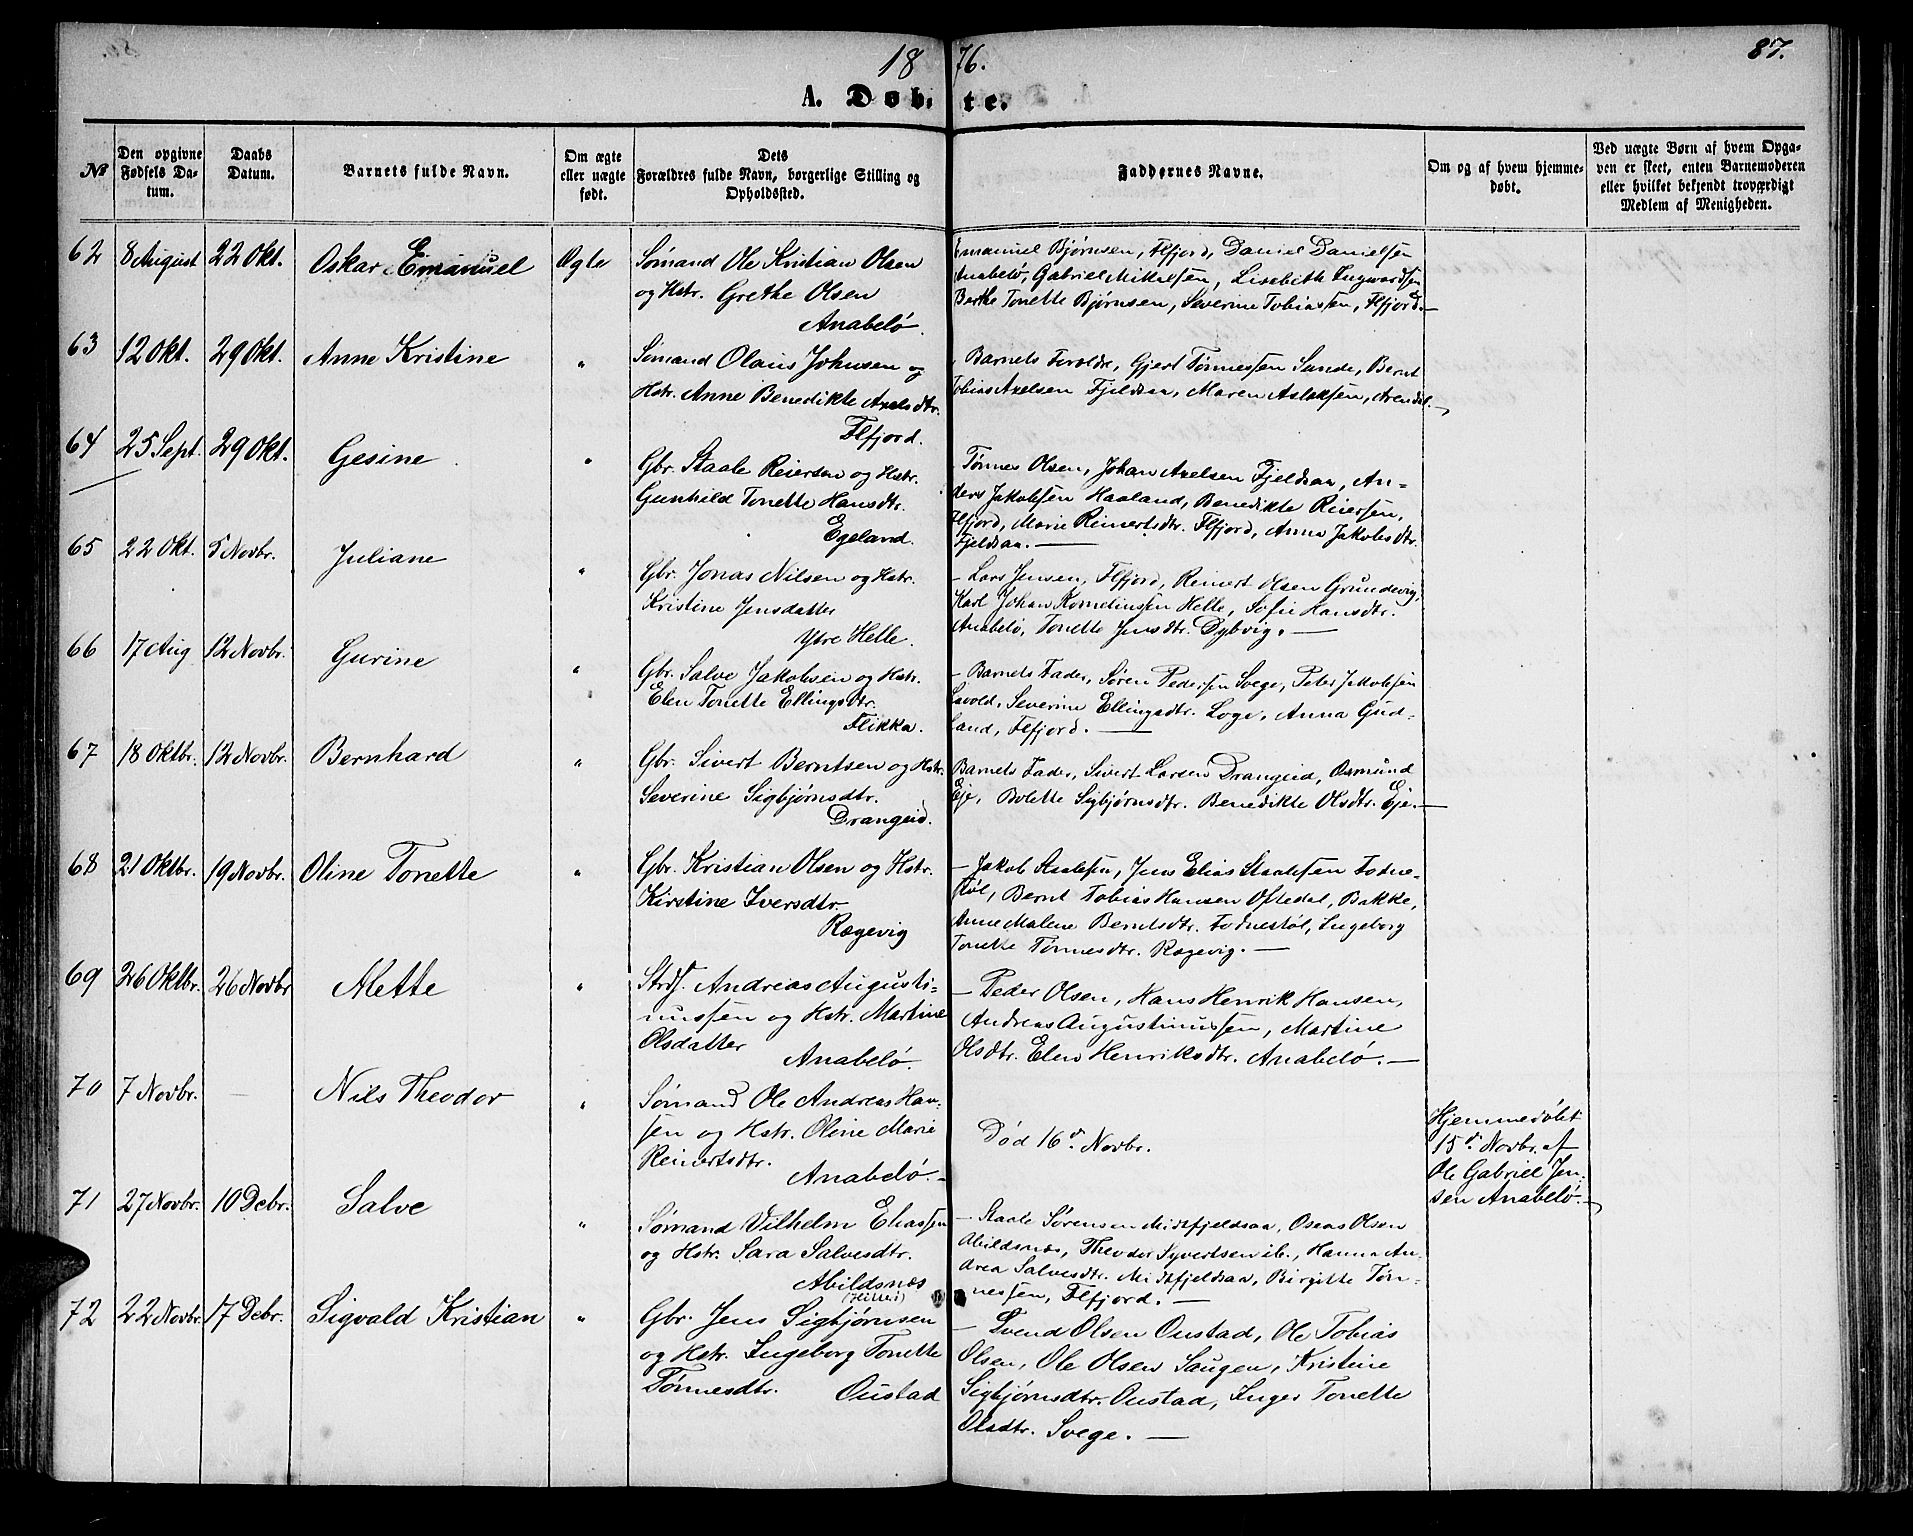 1876.
87.
A. Døbte.
No
Den opgivne Fødsels Datum.
Daabs Datum.
Barnets fulde Navn.
Om ægte eller uægte født.
Dets Forældres fulde Navn, borgerlige Stilling og Opholdssted.
Faddernes Navne.
Om og af hvem hjemmedøbt.
Ved uægte Børn af hvem Opgaven er skeet, enten Barnemoderen eller hvilket bekjendt troværdigt Medlem af Menigheden.
62 8 August 22 Okt. Oskar Emanuel Ægte
Sømand Ole Kristian Olsen
og Hstr. Grethe Olsen
Anabelø.
Emanuel Bjørnsen, Flfjord, Daniel Danielsen
Anabelø, Gabriel Mikalsen, Lisabeth Ingwardsen
Berthe Tonette Bjørnsen, Severine Tobiassen, Flfjord.—
63 12 Okt. 29 Okt. Anne Kristine "
Sømand Olaus Johnsen og
Hstr. Anne Benedikte Axelsdtr.
Flfjord.
Barnets Foreldre, Gjert Tønnessen Sande, Bernt
Tobias Axelsen Fjeldsaa, Maren Aslaksen, Arendal.—
64 25 Sept. 29 Okt. Gesine "
Gbr. Staale Reiersen og Hstr.
Gunhild Tonette Hansdtr.
Egeland.
- Tønnes Olsen, Johan Axelsen Fjeldsaa, An-
ders Jakobsen Haaland, Benedikte Reiersen,
Flfjord, Marie Reinertsdtr. Flfjord, Anna Jakobsdtr.
Fjeldsaa.—
65 22 Okt. 5 Novbr. Juliane "
Gbr. Jonas Nilsen og Hstr.
Kristine Jensdatter
Ytre Helle.
- Lars Jensen, Flfjord, Reinert Olsen Grundevig,
Karl Johan Korneliussen Helle, Sofie Hansdtr.
Anabelø, Tonette Jensdtr. Dybvig.—
66 17 Aug 12 Novbr. Gurine "
Gbr. Salve Jakobsen og Hstr.
Elen Tonette Ellingsdtr.
Flikka.
- Barnets Fader, Søren Pedersen Svege, Peter Jakobsen
Lavold, Severine Ellingsdtr. Loge, Anna Gud-
land, Flfjord.—
67 18 Oktbr. 12 Novbr. Bernhard "
Gbr. Sivert Berntsen og Hstr.
Severine Sigbjørnsdtr.
Drangeid.
Barnets Fader, Sivert Larsen Drangeid, Osmund
Eje, Bolette Sigbjørnsdtr. Benedikte Olsdtr. Eje.—
68 21 Oktbr. 19 Novbr. Oline Tonette "
Gbr. Kristian Olsen og Hstr.
Kirstine Iversdtr.
Rægevig
- Jakob Staalesen, Jens Elias Staalesen Fodne-
støl, Bernt Tobias Hansen Oftedal, Bakke,
Anne Malene Berntsdtr. Fodnestøl, Ingeborg
Tonette Tønnesdtr. Rægevig.—
69 26 Oktbr. 26 Novbr Mette "
Strdf. Andreas Augusti-
nussen og Hstr. Martine
Olsdatter
Anabelø.
- Peder Olsen, Hans Henrik Hansen,
Andreas Augustinussen, Martine
Olsdtr. Elen Henriksdtr. Anabelø.—
70 7 Novbr. — Nils Theodor "
Sømand Ole Andreas Han-
sen og Hstr. Oline Marie
Reinertsdtr.
Anabelø.-
Død 16de Novbr.
Hjemmedøbt
15de Novbr. af
Ole Gabriel Jen-
sen Anabelø.—
71 27 Novbr. 10 Debr. Salve "
Sømand Vilhelm Eliassen
og Hstr. Sara Salvesdtr.
Abildsnæs
- Staale Sørensen Midtfjeldsaa, Oseas Olsen
Abildsnæs, Theodor Syvertsen ib., Hanna An-
drea Salvesdtr. Midtfjeldsaa, Birgitte Tøn-
nessen, Flfjord.—
72 22 Novbr. 17 Debr. Sigvald Kristian "
Gbr. Jens Sigbjørnsen
og Hstr. Ingeborg Tonette
Tønnesdtr. Oustad
- Svend Olsen Oustad, Ole Tobias
Olsen, Ole Olsen Saugen, Kristine
Sigbjørnsdtr. Oustad, Inger Tonette
Olsdtr. Svege.—